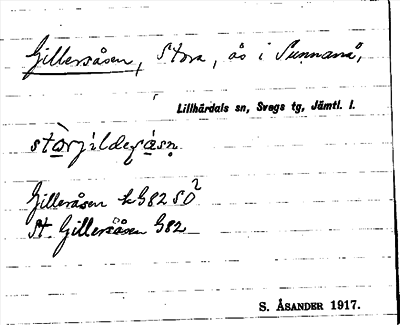 Gilleråsen, Stora, ås i Sunnanå,
Lillhärdals sn, Svegs tg, Jämtl. l.
Gilleråsen k 982 SO²
St. Gilleråsen 982
S. ÅSANDER 1917.